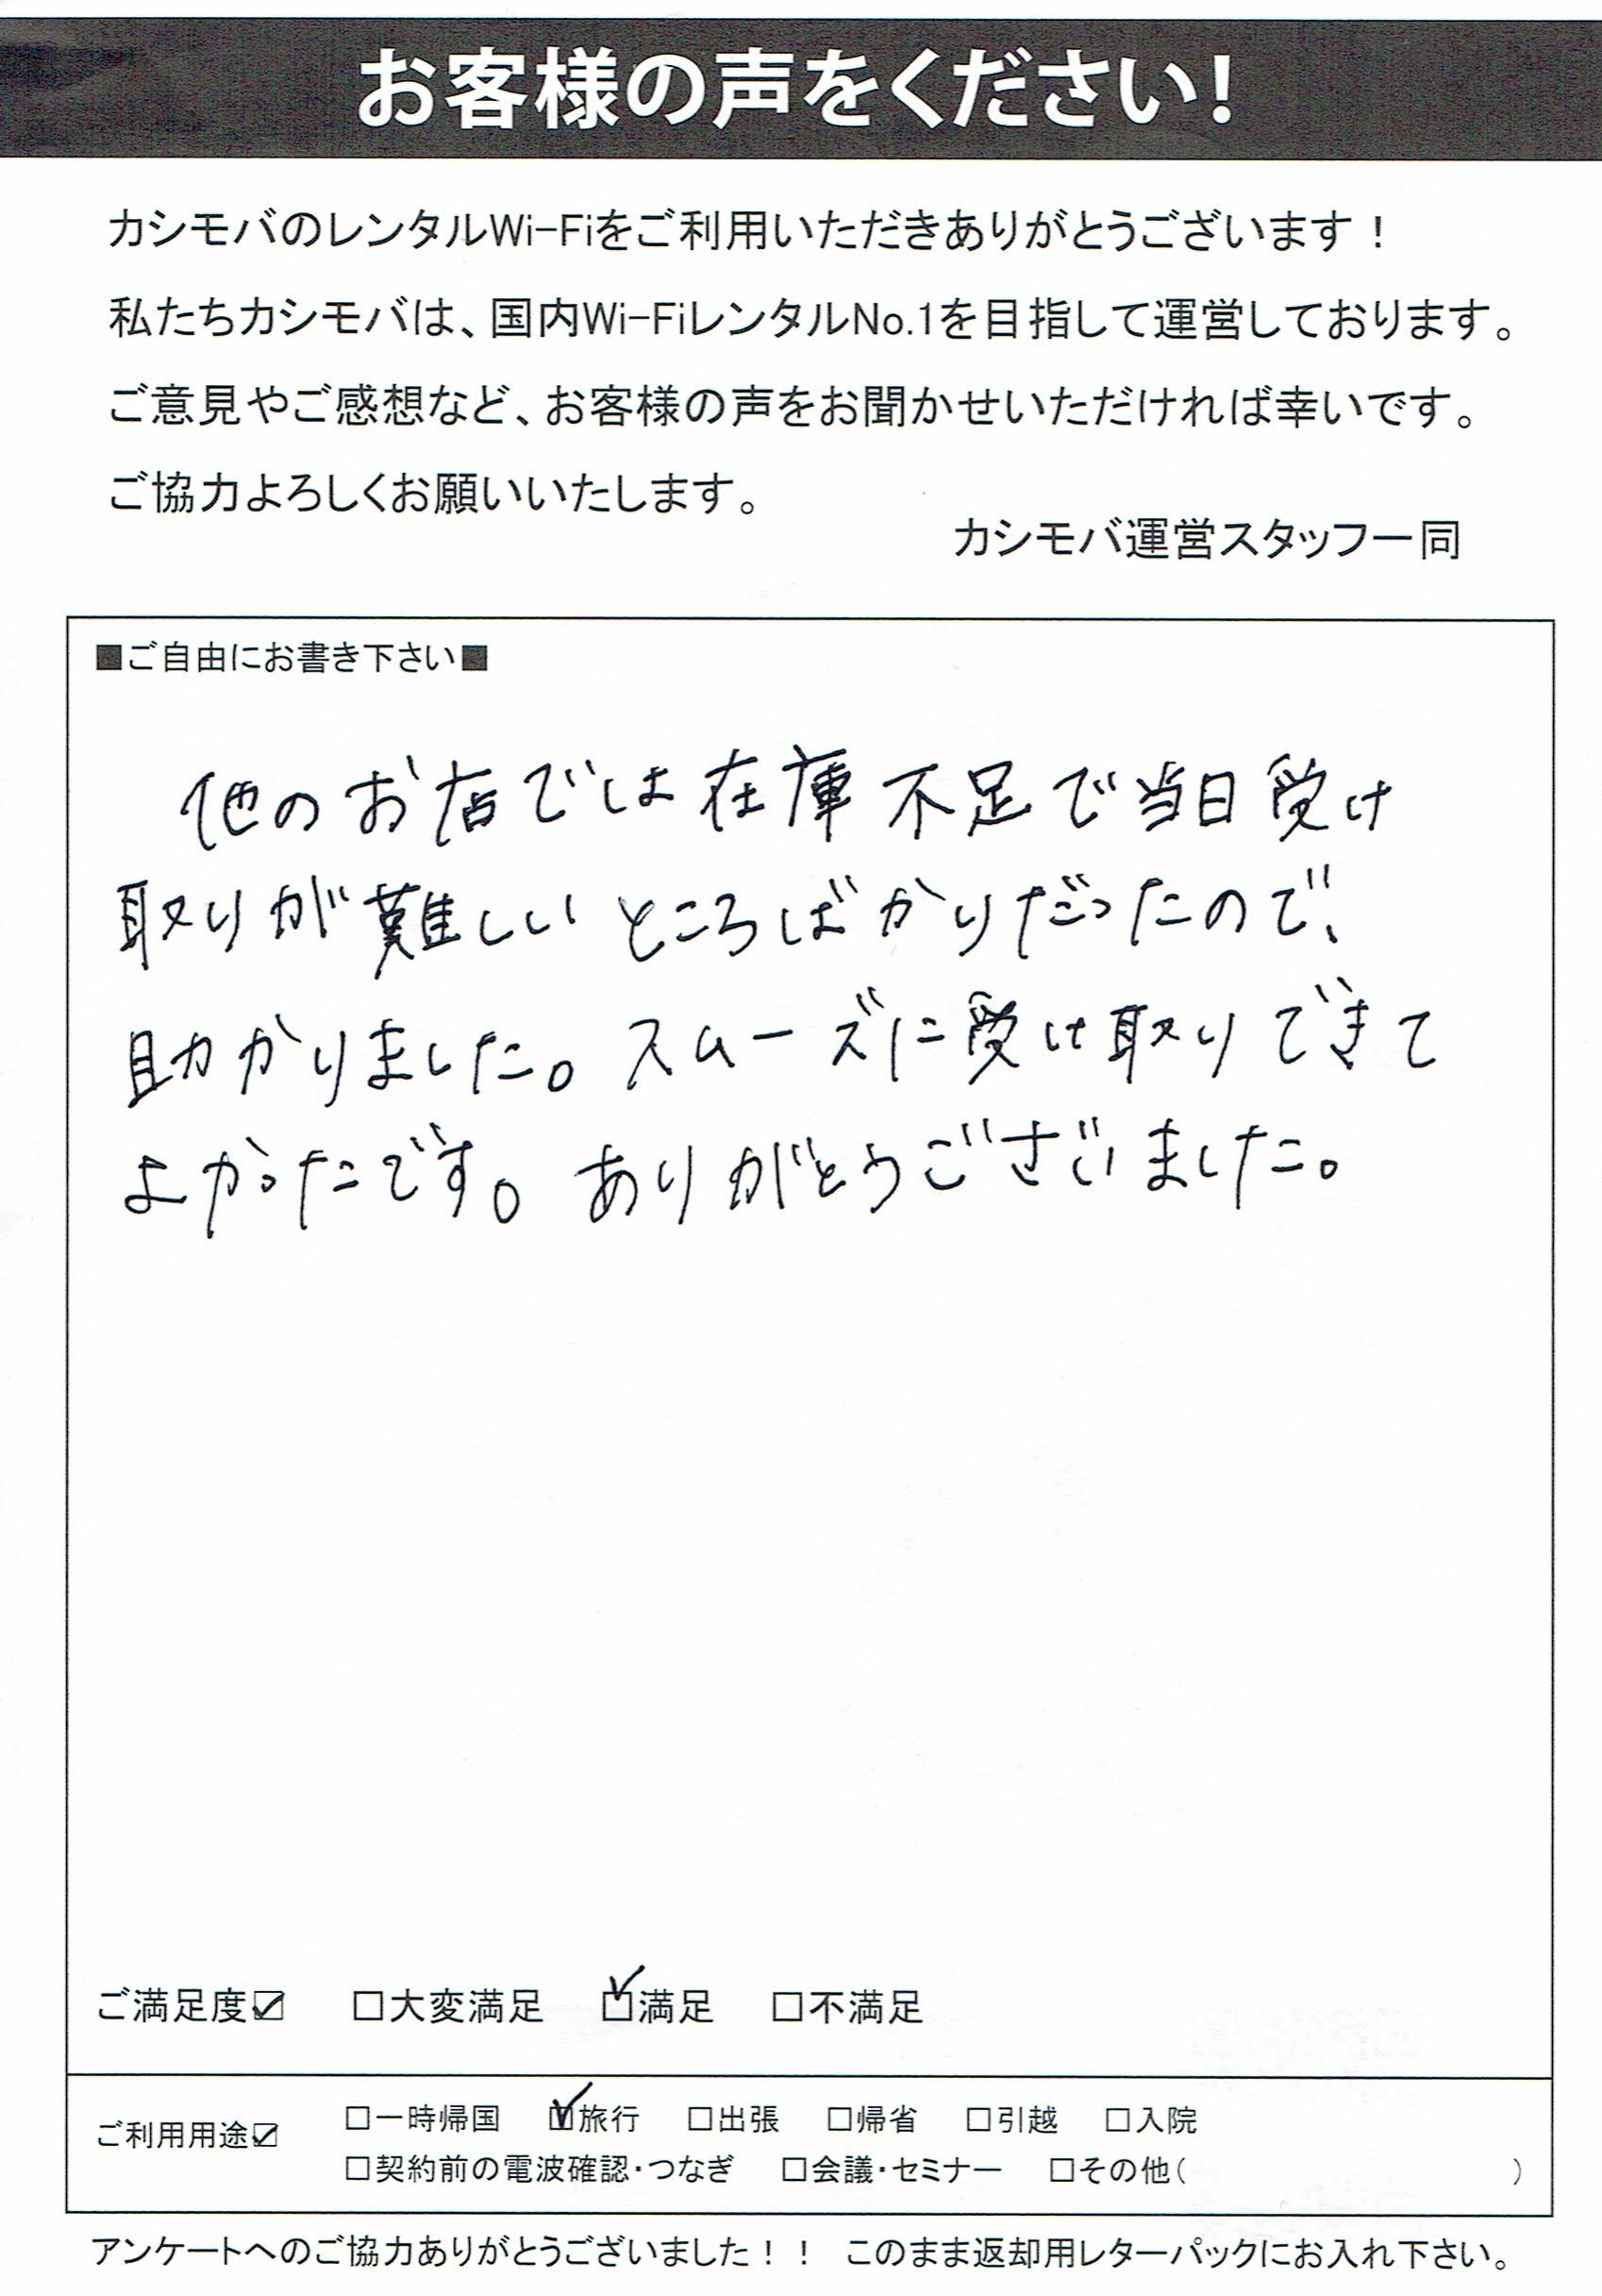 お客様の声をください!
カシモバのレンタルWi-Fiをご利用いただきありがとうございます！
私たちカシモバは、国内Wi-FiレンタルNo.1を目指して運営しております。
ご意見やご感想など、お客様の声をお聞かせいただければ幸いです。
ご協力よろしくお願いいたします。
カシモバ運営スタッフ一同
■ご自由にお書き下さい■
他のお店では在庫不足で当日受け
取りが難しいところばかりだったので、
助かりました。スムーズに受け取りできて
よかったです。ありがとうございました。
ご満足度☑ □大変満足 ☑満足 □不満足
ご利用用途☑ □一時帰国 ☑旅行 □出張 □帰省 □引越 □入院
□契約前の電波確認・つなぎ □会議・セミナー □その他( )
アンケートへのご協力ありがとうございました！！ このまま返却用レターパックにお入れ下さい。